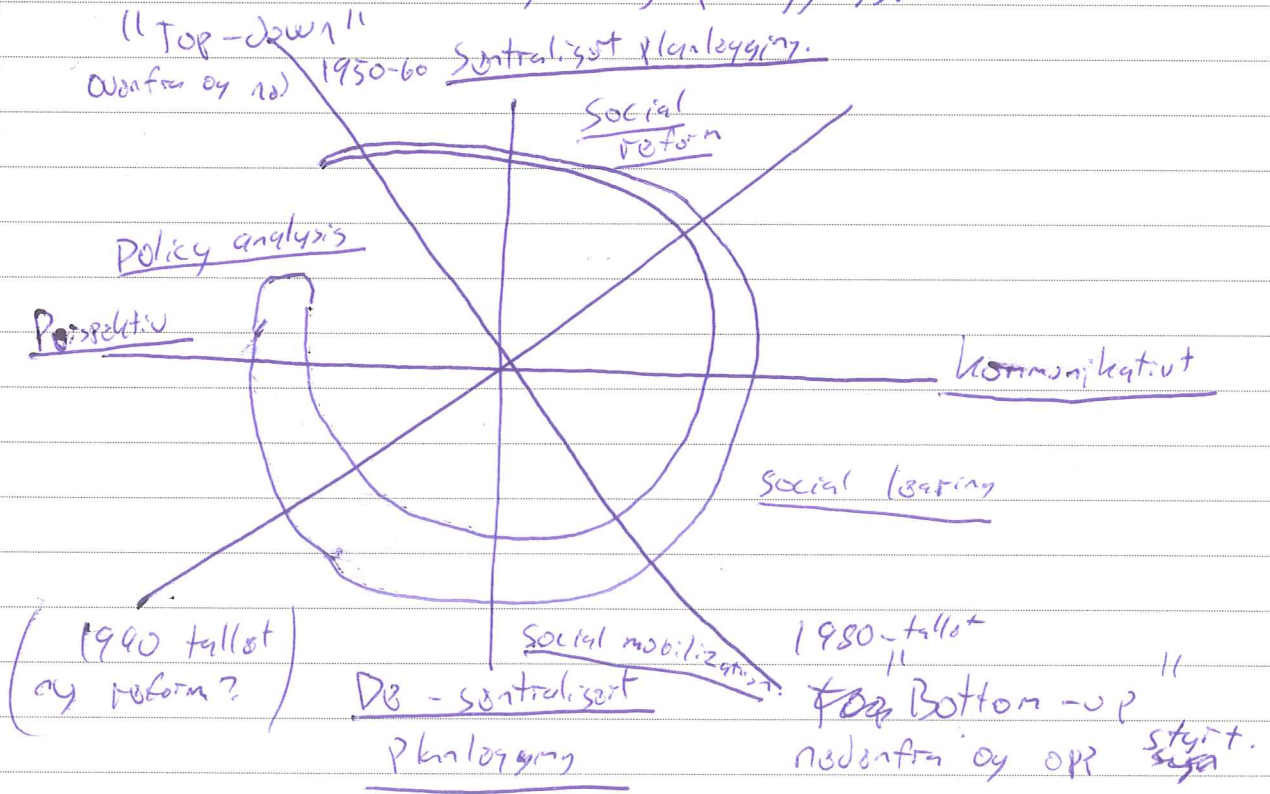 "Top-down"
Ovenfra og ned
1950-60 Sentralisert planlegging.
Social
reform
Policy analysis
Perspektiv
Kommunikativt
Social learing
(1990 tallet
ny reform?)
Social mobilization.
De-sentralisert
planlegging
1980-tallet
"Bottom-up"
nedenfra og opp styrt.